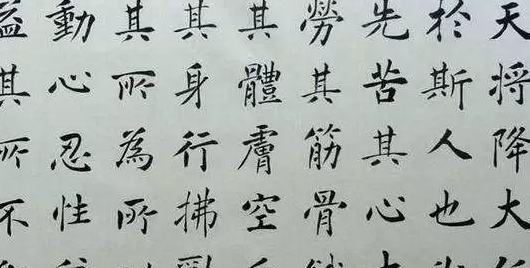 天將降大
於斯人也
先苦其心
勞其筋骨
其體膚空
其身行拂
其所為所
動心忍性
益其所不